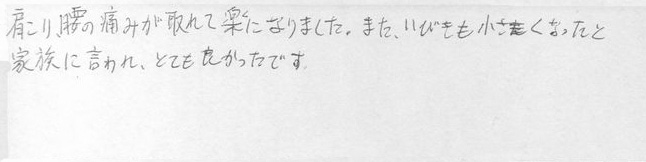 肩こり、腰の痛みが取れて楽になりました。また、いびきも小さくなったと
家族に言われ、とても良かったです。